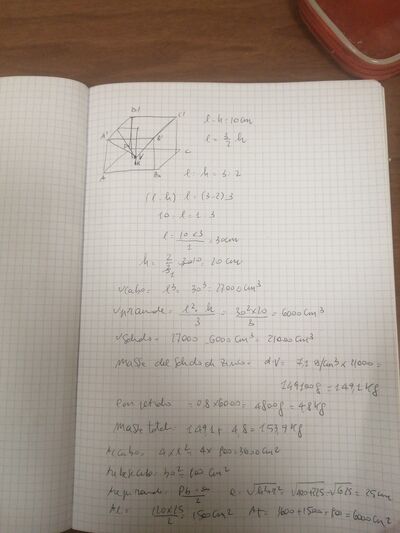 D' C'
A' B'
D V C
A B
l - h = 10 cm
l = 3/2 h
l : h = 3 : 2
(l - h) : l = (3-2) : 3
10 : l = 1 : 3
l = 10 × 3 / 1 = 30 cm
h = 2/3 30 = 20 cm
Vcubo = l³ = 30³ = 27000 cm³
Vpiramide = l² · h / 3 = 30² × 20 / 3 = 6000 cm³
Vsolido = 27000 - 6000 cm³ = 21000 cm³
Massa del solido di zinco = d·V = 7,1 g/cm³ × 21000 =
= 149100 g = 149,1 kg
= 0,8 × 6000 = 4800 g = 4,8 kg
Massa totale = 149,1 + 4,8 = 153,9 kg
Alcubo = 4 × l² = 4 × 900 = 3600 cm²
30² = 900 cm²
a = = 25 cm
Al = 120 × 25 / 2 = 1500 cm² At = 3600 + 1500 + 900 = 6000 cm²